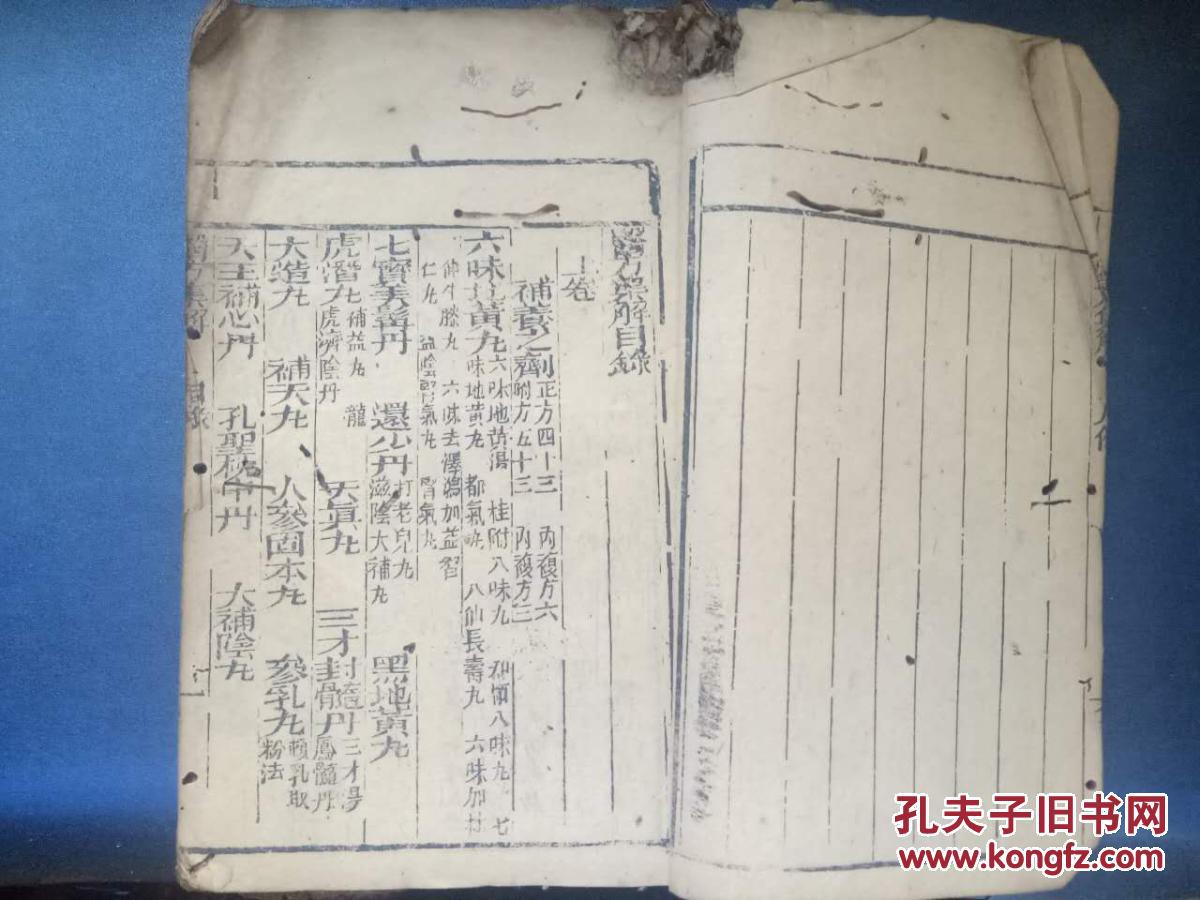 醫方集解目錄
上卷
補養之劑 正方四十三 內複方六
附方五十三 內複方三
六味地黃丸 六味地黃湯 桂附八味丸 知柏八味丸 七
味地黃丸 都氣 八仙長壽丸 六味加杜
仲牛膝丸 六味去澤瀉加益智
仁丸 益陰腎氣丸 腎氣丸
七寶美髯丹 還少丹 打老兒丸
滋陰大補丸 黑地黃丸
虎潛丸 補益丸 龍
虎濟陰丹 天真丸 三才封髓丹 三才湯
鳳髓丹
大造丸 補天丸 人參固本丸 參乳丸 乳取
粉法
天王補心丹 孔聖枕中丹 大補陰丸
目錄
孔夫子旧书网
www.kongfz.com